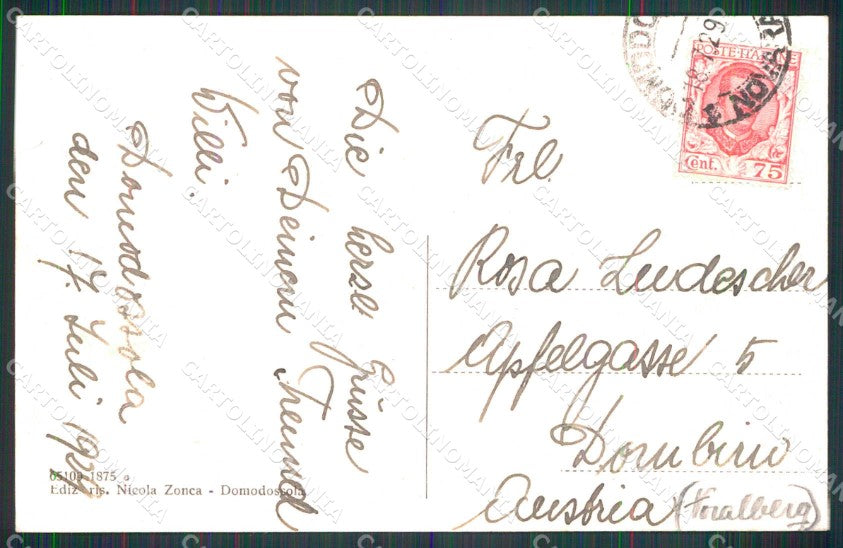 Die herzl Grüsse
von Deinem Freund
Willi.
Domodossola
den 17. Juli 192
Frl.
Rosa Ludescher
Apfelgasse 5
Dornbirn
Austria (Voralberg)
POSTE ITALI
Cent. 75
65109 1875
Ediz ris. Nicola Zonca - Domodossola
CARTOLINOMANIA